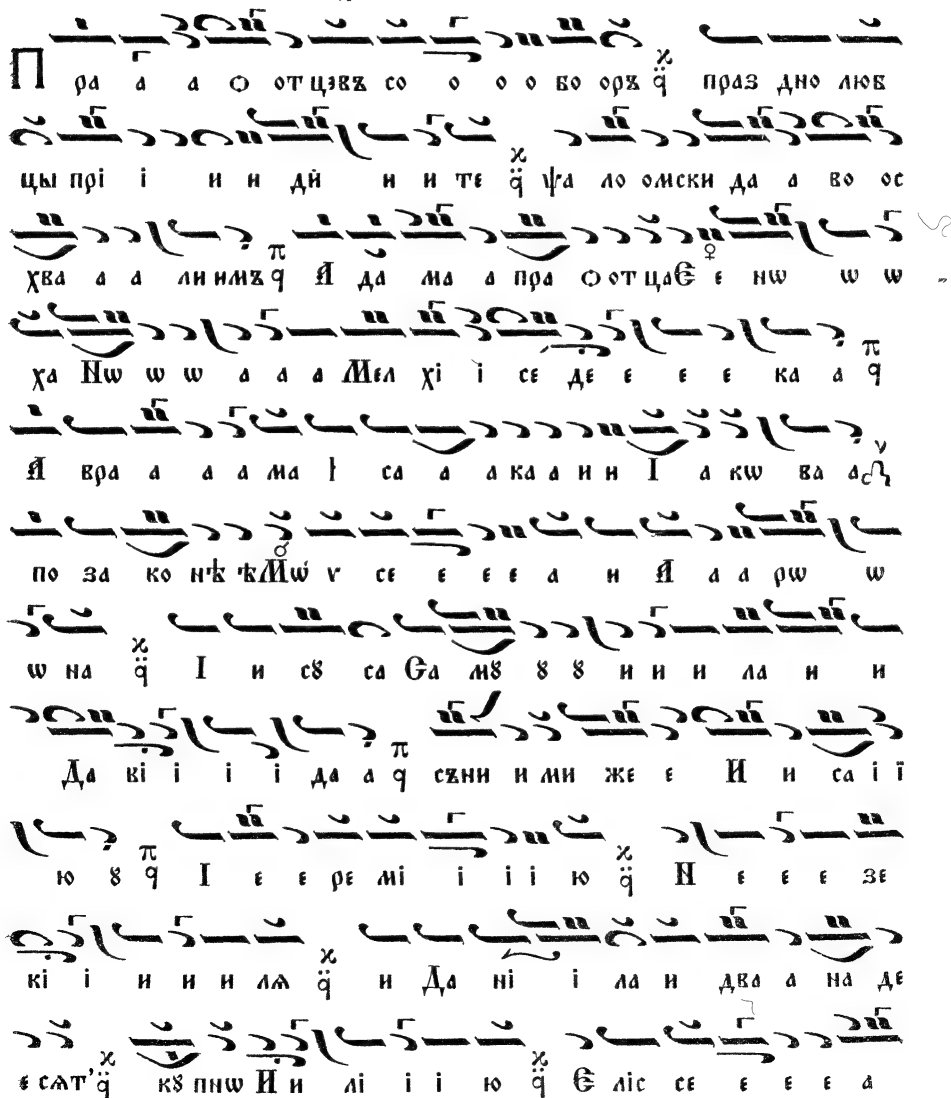 Пра а а ѻ отцэвъ со о о о бо оръ празднолюб
цы прі і и и дѝ и и те ѱа ло омски да а во ос
хва а а ли имъ А да ма а пра ѻ отца Є є нѡ ѡ ѡ
ха Нѡ ѡ ѡ а а а Мел хі і се де є є є є ка а
А вра а а а ма І са а а ка а и и І а кѡ ва а
по за ко нѣ ѣ Мѡѵ се є є є а и А а а рѡ ѡ
ѡ на І и сꙋ са Са мꙋ ꙋ ꙋ и и и ла и и
Да ві і і і да а съ ни и ми же є И и са і ї
ю ꙋ І є є ре мі і і і ю И є є є зе
кі і и и и лѧ и Да ні і ла и два а на де
є сѧт' кꙋ пнѡ И и лі і і ю Є ліс се є є є а